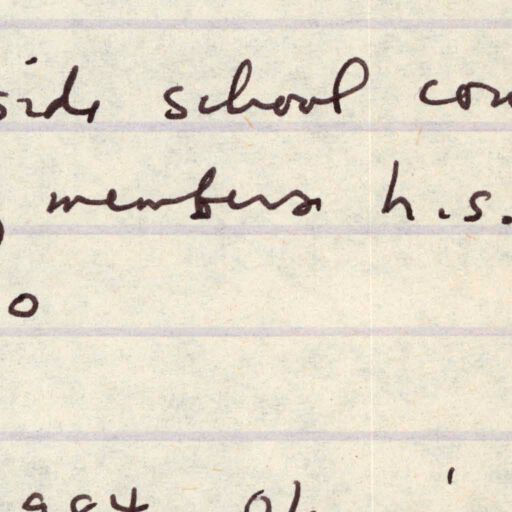 side school con
members h.s.
o